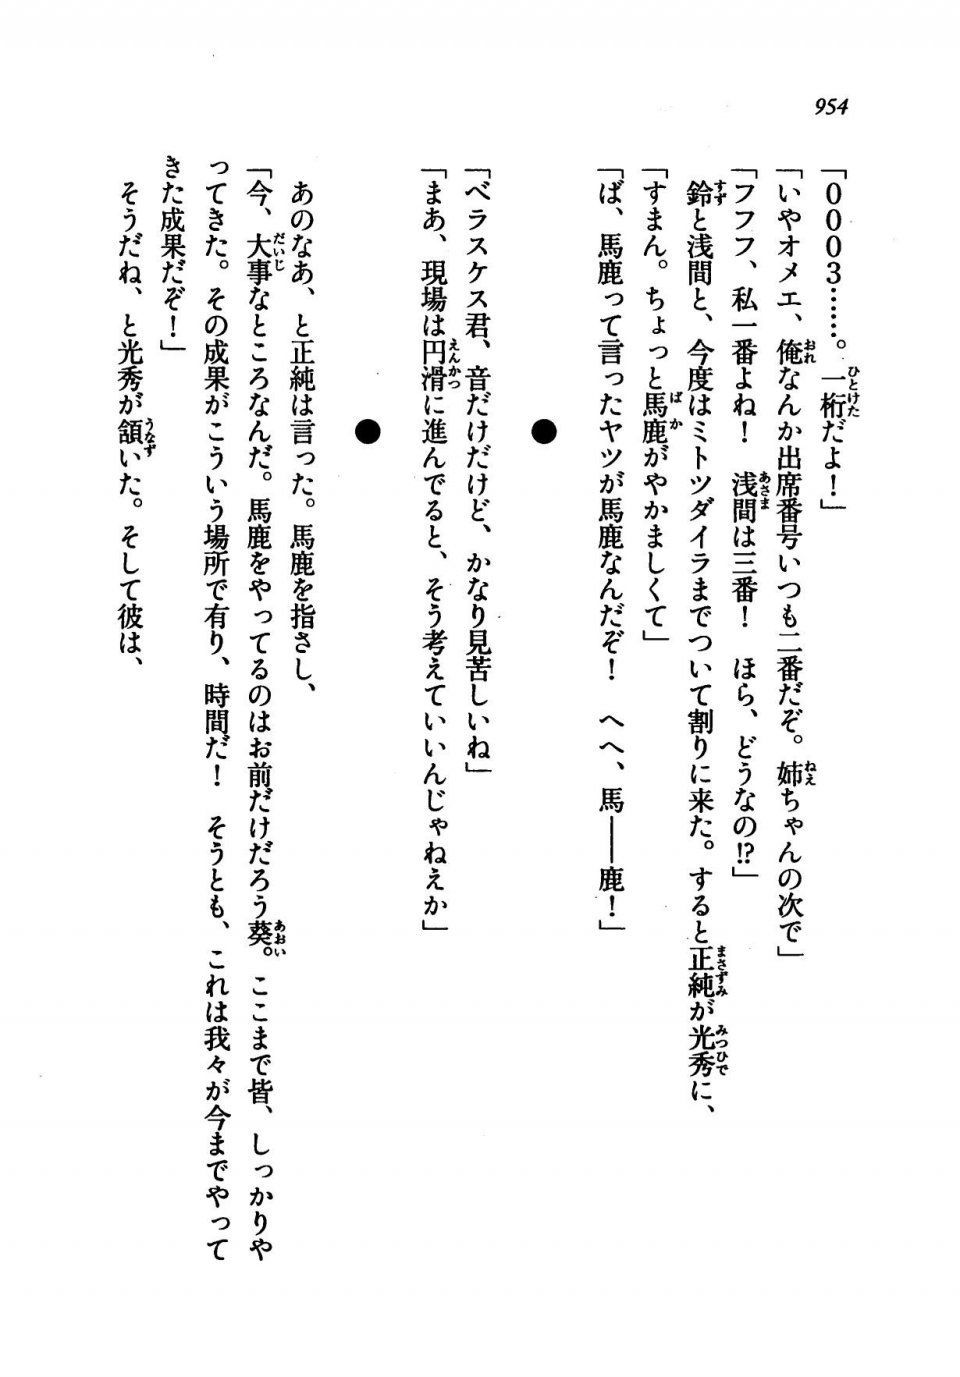 954
「０００３……。一桁だよ！」
「いやオメエ、俺なんか出席番号いつも二番だぞ。姉ちゃんの次で」
「フフフ、私一番よね！　浅間は三番！　ほら、どうなの!?」
　鈴と浅間と、今度はミトツダイラまでついて割りに来た。すると正純が光秀に、
「すまん。ちょっと馬鹿がやかましくて」
「ば、馬鹿って言ったヤツが馬鹿なんだぞ！　へへ、馬――鹿！」
●
「ベラスケス君、音だけだけど、かなり見苦しいね」
「まあ、現場は円滑に進んでると、そう考えていいんじゃねえか」
●
　あのなあ、と正純は言った。馬鹿を指さし、
「今、大事なところなんだ。馬鹿をやってるのはお前だけだろう葵。ここまで皆、しっかりや
ってきた。その成果がこういう場所で有り、時間だ！　そうとも、これは我々が今までやって
きた成果だぞ！」
　そうだね、と光秀が頷いた。そして彼は、